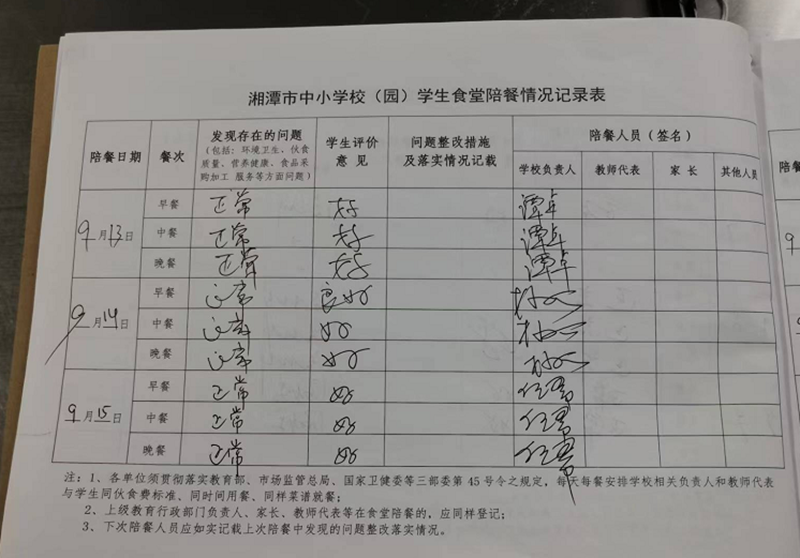 湘潭市中小学校（园）学生食堂陪餐情况记录表
陪餐日期 餐次 发现存在的问题 学生评价 问题整改措施 陪餐人员（签名）
（包括：环境卫生、伙食
质量、营养健康、食品采
购加工 服务等方面问题）
意 见 及落实情况记载 学校负责人 教师代表 家 长 其他人员
早餐 正常 好 谭卓
9月13日 中餐 正常 好 谭卓
晚餐 正常 好 谭卓
早餐 正常 良好
9月14日 中餐 正常 好
晚餐 正常 好
早餐 正常 好
9月15日 中餐 正常 好
晚餐 正常 好
注：1、各单位须贯彻落实教育部、市场监管总局、国家卫健委等三部委第45号令之规定，每天每餐安排学校相关负责人和教师代表
与学生同伙食费标准、同时间用餐、同样菜谱就餐；
2、上级教育行政部门负责人、家长、教师代表等在食堂陪餐的，应同样登记；
3、下次陪餐人员应如实记载上次陪餐中发现的问题整改落实情况。
陪餐
9